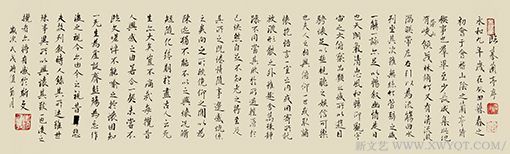 永和九年歲在癸丑暮春之
初會于會稽山陰之蘭亭脩
禊事也羣賢畢至少長咸集此地
有崇山峻領茂林脩竹又有清流激
湍暎帶左右引以為流觴曲水
列坐其次雖無絲竹管弦之盛
一觴一詠亦足以暢敘幽情是日
也天朗氣清惠風和暢仰觀宇
宙之大俯察品類之盛所以遊目
騁懷足以極視聽之娛信可樂
也夫人之相與俯仰一世或取諸
懷抱悟言一室之內或因寄所託
放浪形骸之外雖趣舍萬殊靜
躁不同當其欣於所遇蹔得於
己怏然自足不知老之將至及
其所之既惓情隨事遷感慨係
之矣向之所欣俛仰之間以為
陳迹猶不能不以之興懷況脩
短隨化終期於盡古人云死
生亦大矣豈不痛哉每攬昔
人興感之由若合一契未嘗不
臨文嗟悼不能喻之於懷固知
一死生為虛誕齊彭殤為妄作
後之視今亦由今之視昔悲
夫故列敘時人錄其所述雖世
殊事異所以興懷其致一也後之
攬者亦將有感於斯文
新文艺 WWW.XWYQT.COM